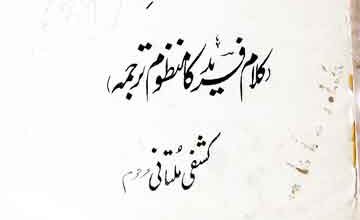 (کلام فرید کا منظوم ترجمہ)
کشفی مُلتانی مرحوم